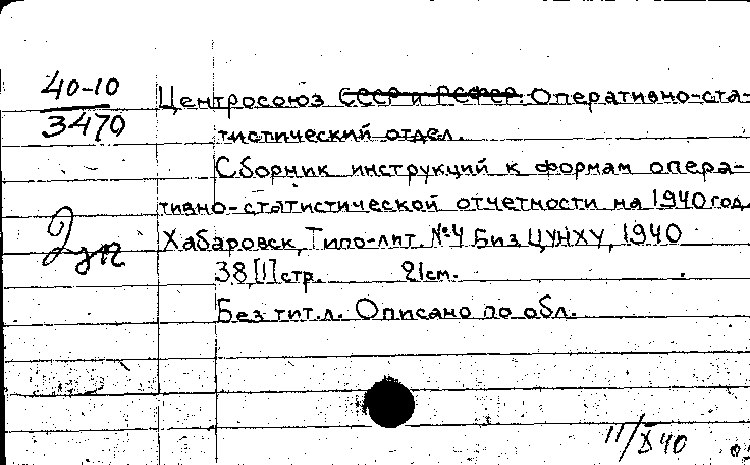 40-10
3479
Центросоюз СССР и РСФСР. Оперативно-ста-
тистический отдел.
Сборник инструкций к формам опера-
тивно-статистической отчетности на 1940 год.
Хабаровск, Типо-лит. №4 Биз ЦУНХУ, 1940
38,[1] стр. 21 см.
Без тит.л. Описано по обл.
11/X 40